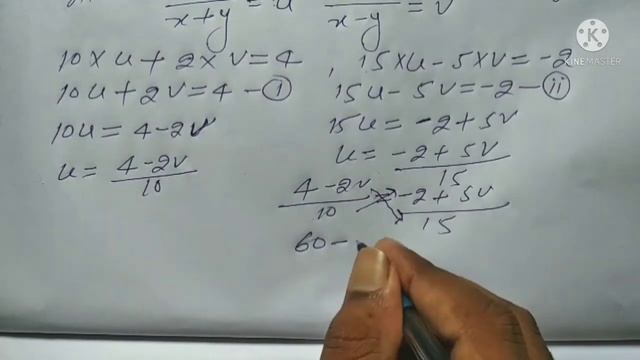 1/(x+y) = u    1/(x-y) = v
10×u + 2×v = 4 , 15×u - 5×v = -2
10u + 2v = 4 - (i)    15u - 5v = -2 - (ii)
10u = 4 - 2v    15u = -2 + 5v
u = (4 - 2v)/10    u = (-2 + 5v)/15
(4 - 2v)/10 = (-2 + 5v)/15
60 -
K
KINEMASTER